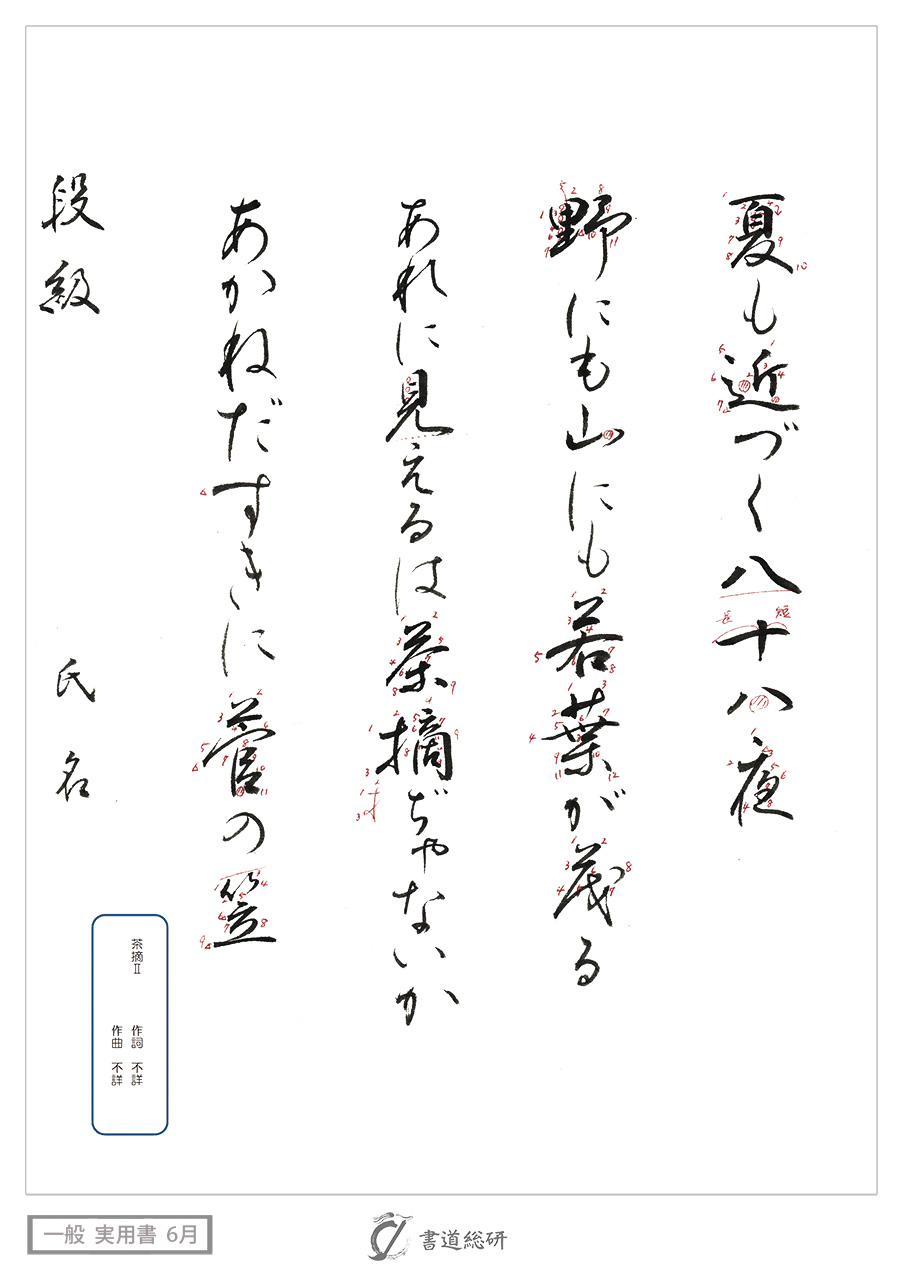 夏も近づく八十八夜
野にも山にも若葉が茂る
あれに見えるは茶摘ぢゃないか
あかねだすきに菅の笠
段級 氏名
茶摘Ⅱ
作詞 不詳
作曲 不詳
一般 実用書 6月
書道総研